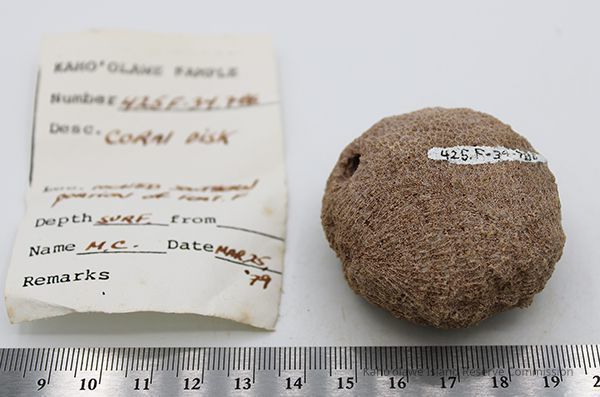 KAHO'OLAWE SAMPLE
Number 425.F-39-786
Desc. CORAL DISK
SOUTHERN
PORTION OF FEAT. F
Depth SURF. from
Name M.C. Date MAR 25,
'79
Remarks
425.F-39-786
9 10 11 12 13 14 15 16 17 18 19 2
Kaho'olawe Island Reserve Commission